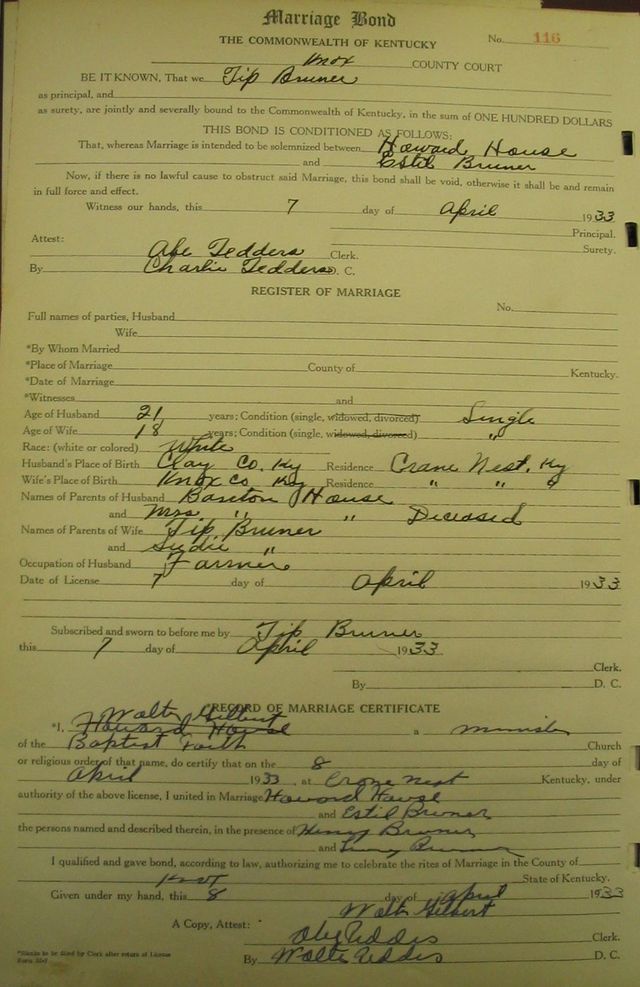 Marriage Bond
THE COMMONWEALTH OF KENTUCKY No. 116
Knox COUNTY COURT
BE IT KNOWN, That we Tip Bruner
as principal, and
as surety, are jointly and severally bound to the Commonwealth of Kentucky, in the sum of ONE HUNDRED DOLLARS
THIS BOND IS CONDITIONED AS FOLLOWS:
That, whereas Marriage is intended to be solemnized between Howard House
and Estil Bruner
Now, if there is no lawful cause to obstruct said Marriage, this bond shall be void, otherwise it shall be and remain
in full force and effect.
Witness our hands, this 7 day of April 1933
Principal.
Attest: Surety.
Abe Tedders Clerk.
By Charlie Tedders D. C.
REGISTER OF MARRIAGE
No.
Full names of parties, Husband
Wife
*By Whom Married
*Place of Marriage County of Kentucky.
*Date of Marriage
*Witnesses and
Age of Husband 21 years; Condition (single, widowed, divorced) Single
Age of Wife 18 years; Condition (single, widowed, divorced) "
Race: (white or colored) White
Husband's Place of Birth Clay Co. Ky Residence Crane Nest, Ky
Wife's Place of Birth Knox Co Ky Residence " " "
Names of Parents of Husband House
and Mrs " " Deceased
Names of Parents of Wife Tip Bruner
and Sudie "
Occupation of Husband Farmer
Date of License 7 day of April 1933
Subscribed and sworn to before me by Tip Bruner
this 7 day of April 1933
Clerk.
By D. C.
RECORD OF MARRIAGE CERTIFICATE
Walter Gilbert
*I, Howard House a minister
of the Baptist Faith Church
or religious order of that name, do certify that on the 8 day of
April 1933, at Crane Nest Kentucky, under
authority of the above license, I united in Marriage Howard House
and Estil Bruner
the persons named and described therein, in the presence of Henry Bruner
and Bruner
I qualified and gave bond, according to law, authorizing me to celebrate the rites of Marriage in the County of
Knox State of Kentucky.
Given under my hand, this 8 day of April 1933
Walter Gilbert
A Copy, Attest:
Clerk.
By D. C.
*Blanks to be filled by Clerk after return of License